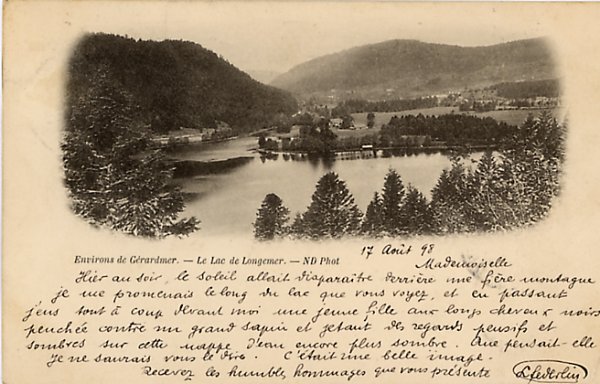 Environs de Gérardmer. — Le Lac de Longemer. — ND Phot
17 Août 98
Mademoiselle
Hier au soir, le soleil allait disparaître derrière une fière montagne
je me promenais le long du lac que vous voyez, et en passant
j'eus tout à coup devant moi une jeune fille aux longs cheveux noirs
penchée contre un grand sapin et jetant des regards pensifs et
sombres sur cette nappe d'eau encore plus sombre. Que pensait-elle
Je ne saurais vous le dire. C'était une belle image.
Recevez les humbles hommages que vous présente
LFederlin